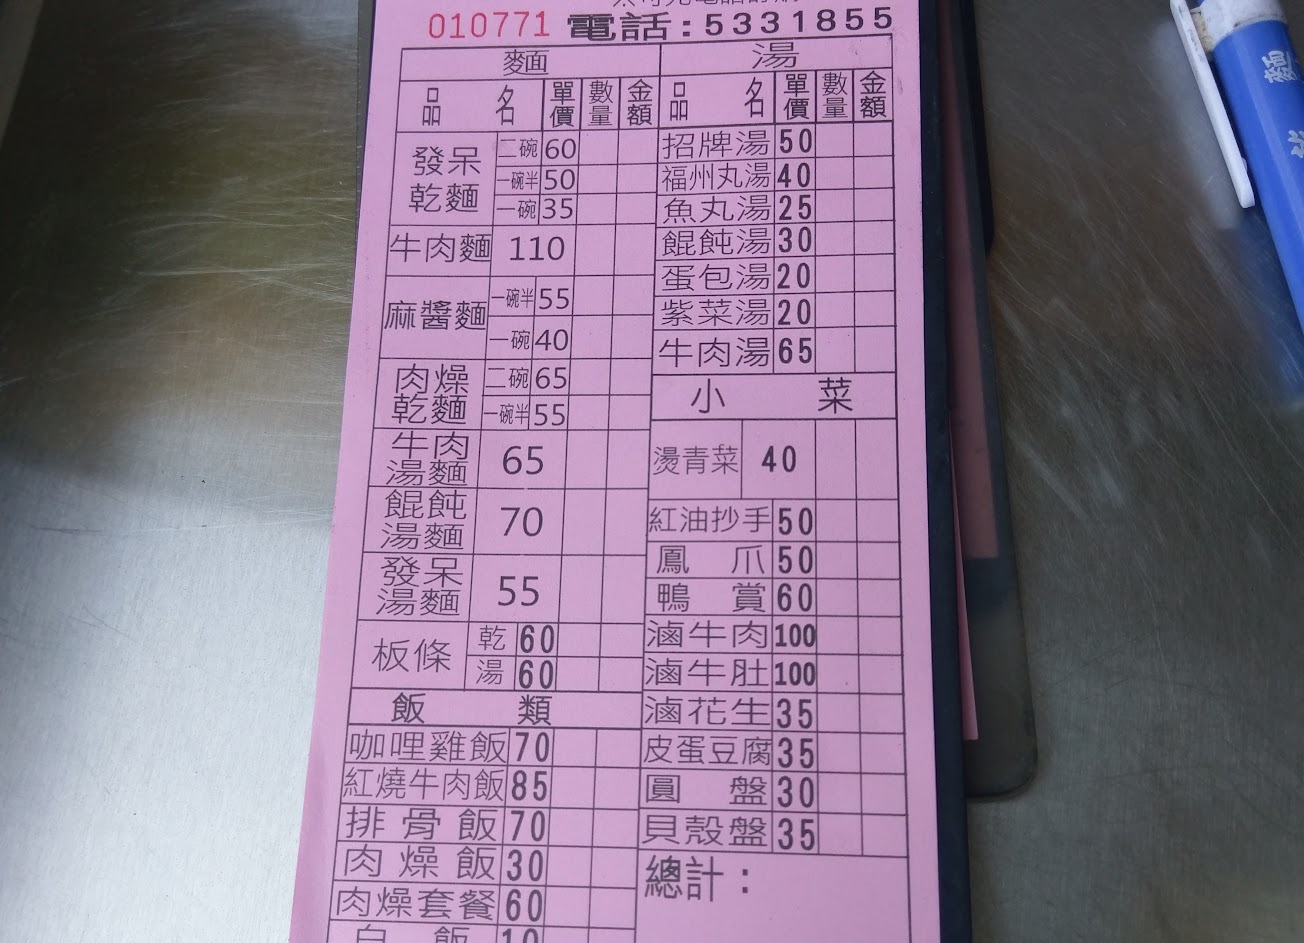 010771 電話:5331855
麵
品名 單價 數量 金額
發呆乾麵 二碗 60
一碗半 50
一碗 35
牛肉麵 110
麻醬麵 一碗半 55
一碗 40
肉燥乾麵 二碗 65
一碗半 55
牛肉湯麵 65
餛飩湯麵 70
發呆湯麵 55
板條 乾 60
湯 60
飯類
咖哩雞飯 70
紅燒牛肉飯 85
排骨飯 70
肉燥飯 30
肉燥套餐 60
白飯 10
湯
品名 單價 數量 金額
招牌湯 50
福州丸湯 40
魚丸湯 25
餛飩湯 30
蛋包湯 20
紫菜湯 20
牛肉湯 65
小菜
燙青菜 40
紅油抄手 50
鳳爪 50
鴨賞 60
滷牛肉 100
滷牛肚 100
滷花生 35
皮蛋豆腐 35
圓盤 30
貝殼盤 35
總計：